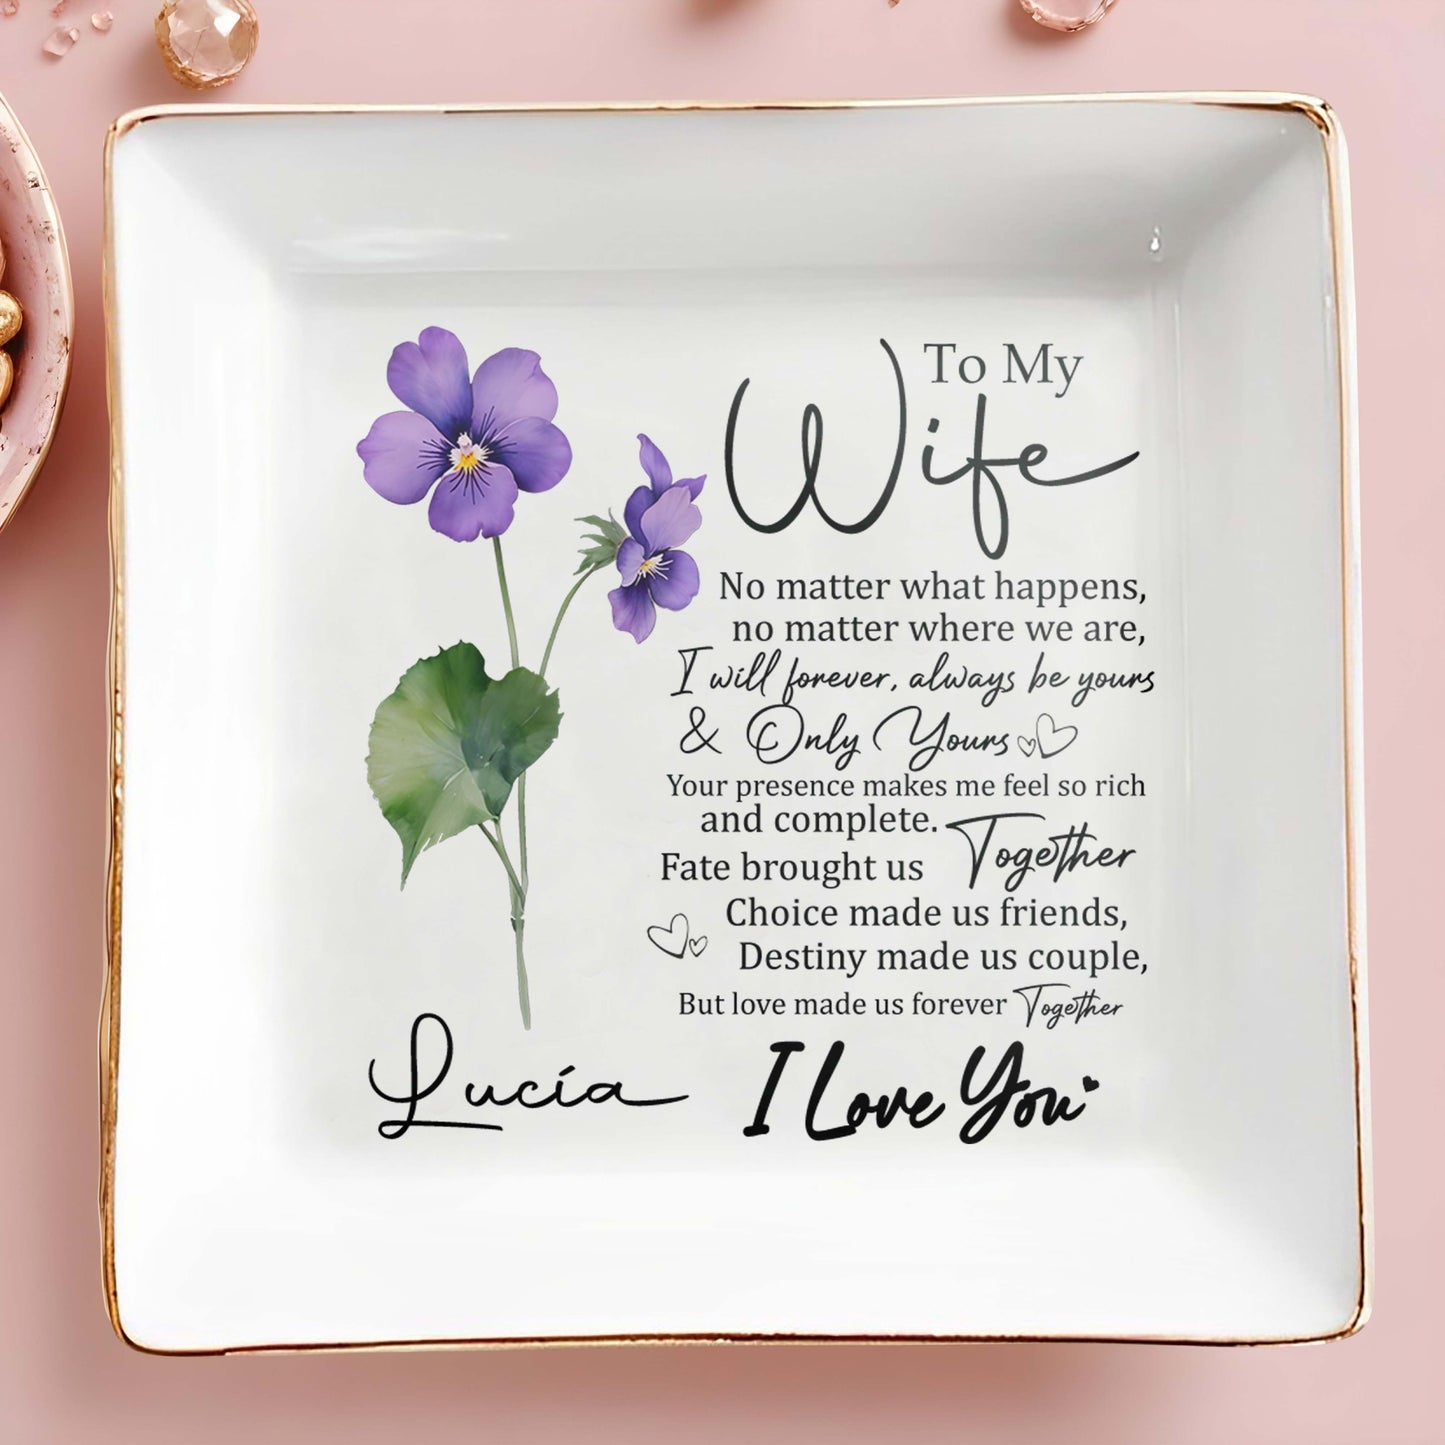 To My
Wife
No matter what happens,
no matter where we are,
I will forever, always be yours
& Only Yours
Your presence makes me feel so rich
and complete.
Fate brought us Together
Choice made us friends,
Destiny made us couple,
But love made us forever Together
Lucía
I Love You